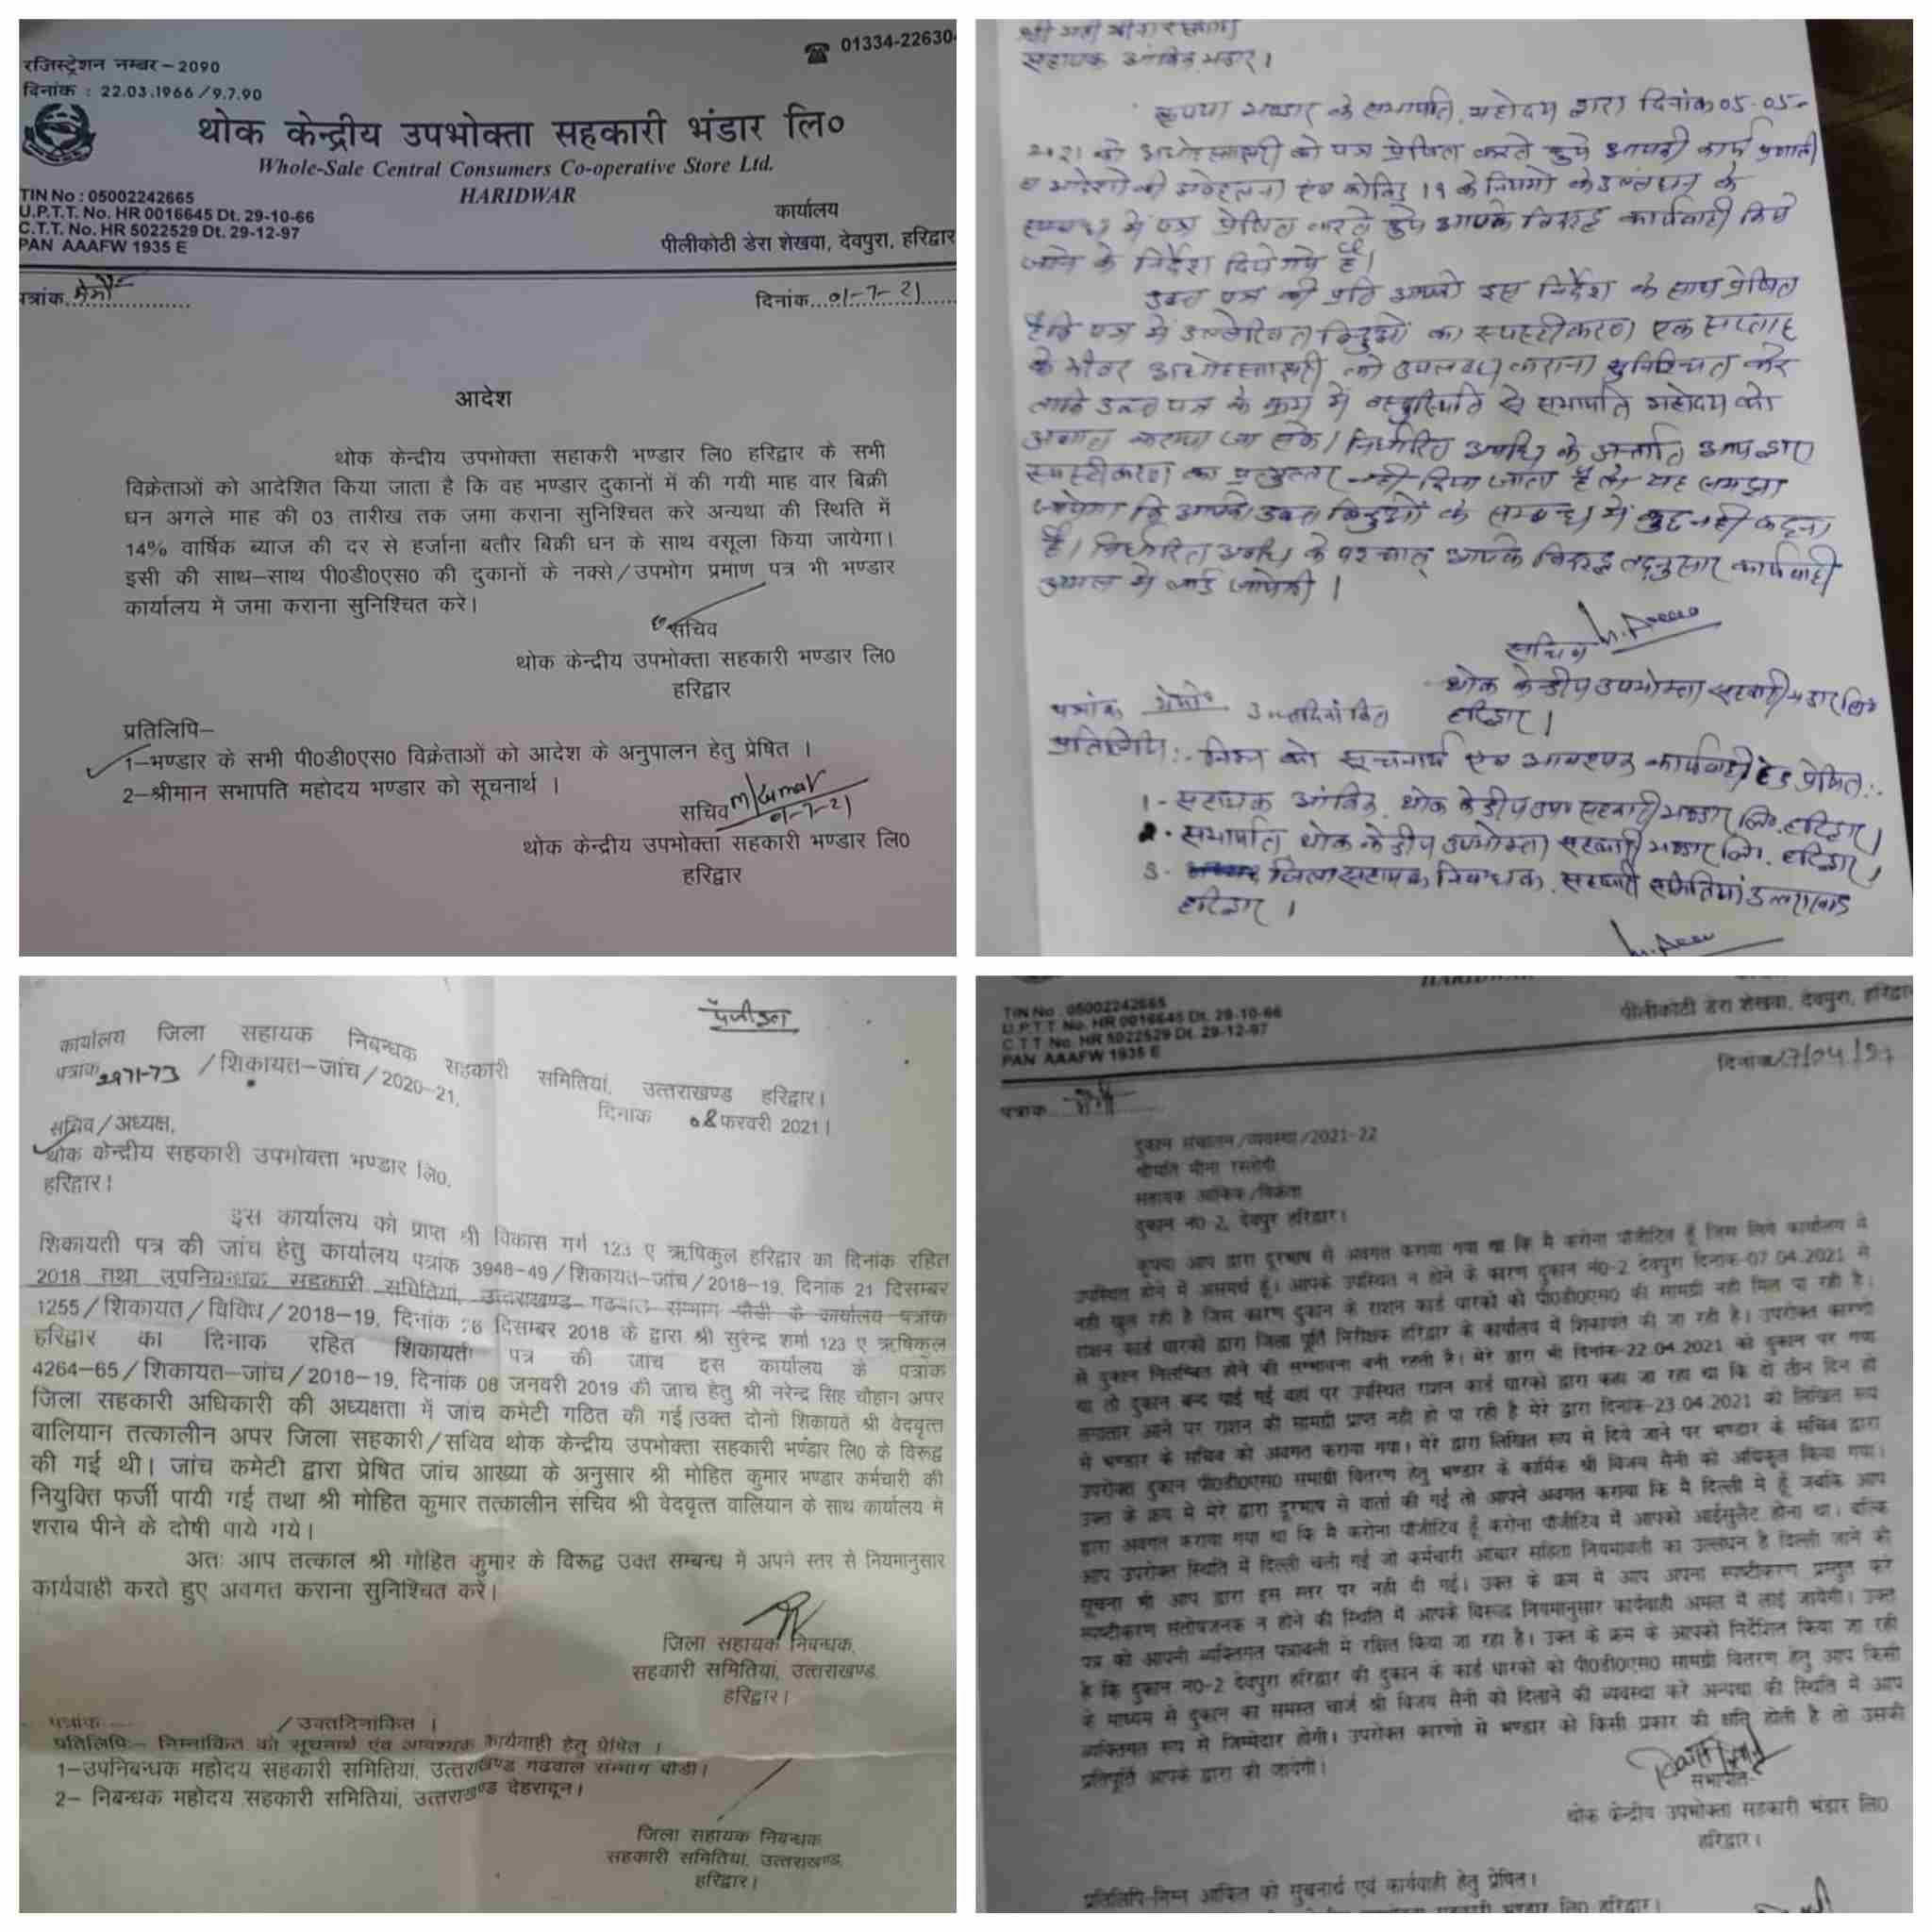 रजिस्ट्रेशन नम्बर–2090
☎ 01334-22630
दिनांक : 22.03.1966/9.7.90
थोक केन्द्रीय उपभोक्ता सहकारी भंडार लि०
Whole-Sale Central Consumers Co-operative Store Ltd.
HARIDWAR
TIN No : 05002242665
U.P.T.T. No. HR 0016645 Dt. 29-10-66
C.T.T. No. HR 5022529 Dt. 29-12-97
PAN AAAFW 1935 E
कार्यालय
पीलीकोठी डेरा शेखवा, देवपुरा, हरिद्वार
पत्रांक मेमो
दिनांक 01-7-21
आदेश
थोक केन्द्रीय उपभोक्ता सहाकरी भण्डार लि0 हरिद्वार के सभी
विक्रेताओं को आदेशित किया जाता है कि वह भण्डार दुकानों में की गयी माह वार बिक्री
धन अगले माह की 03 तारीख तक जमा कराना सुनिश्चित करे अन्यथा की स्थिति में
14% वार्षिक ब्याज की दर से हर्जाना बतौर बिक्री धन के साथ वसूला किया जायेगा।
इसी की साथ–साथ पी0डी0एस0 की दुकानों के नक्से/उपभोग प्रमाण पत्र भी भण्डार
कार्यालय में जमा कराना सुनिश्चित करे।
सचिव
थोक केन्द्रीय उपभोक्ता सहकारी भण्डार लि0
हरिद्वार
प्रतिलिपि–
1–भण्डार के सभी पी0डी0एस0 विक्रेताओं को आदेश के अनुपालन हेतु प्रेषित ।
2–श्रीमान सभापति महोदय भण्डार को सूचनार्थ ।
सचिव M Kumar
01-7-21
थोक केन्द्रीय उपभोक्ता सहकारी भण्डार लि0
हरिद्वार
सहायक आंकिक भण्डार।
कृपया भण्डार के सभापति महोदय द्वारा दिनांक 05-05-
2021 को अधोहस्ताक्षरी को पत्र प्रेषित करते हुये आपकी कार्य प्रणाली
व आदेशो की अवहेलना एंव कोविड 19 के नियमो के उल्लंघन के
सम्बन्ध में पत्र प्रेषित करते हुये आपके विरूद्ध कार्यवाही किये
जाने के निर्देश दिये गये है।
उक्त पत्र की प्रति आपको इस निर्देश के साथ प्रेषित
है कि पत्र में उल्लेखित बिन्दुओं का स्पष्टीकरण एक सप्ताह
के भीतर अधोहस्ताक्षरी को उपलब्ध कराना सुनिश्चित करे
ताकि उक्त पत्र के क्रम में वस्तुस्थिति से सभापति महोदय को
अवगत कराया जा सके। निर्धारित अवधि के अन्तर्गत आप द्वारा
स्पष्टीकरण का प्रत्युत्तर नही दिया जाता है तो यह समझा
जायेगा कि आपको उक्त बिन्दुओं के सम्बन्ध में कुछ नही कहना
है। निर्धारित अवधि के पश्चात् आपके विरूद्ध तद्नुसार कार्यवाही
अमल में लाई जायेगी ।
सचिव
थोक केन्द्रीय उपभोक्ता सहकारी भण्डार लि०
हरिद्वार।
पत्रांक मेमो उक्तदिनांकित
प्रतिलिपि:- निम्न को सूचनार्थ एंव आवश्यक कार्यवाही हेतु प्रेषित:-
1- सहायक आंकिक, थोक केन्द्रीय उप० सहकारी भण्डार लि०, हरिद्वार।
2- सभापति थोक केन्द्रीय उपभोक्ता सहकारी भण्डार लि०, हरिद्वार।
3- जिला सहायक निबन्धक, सहकारी समितियां उत्तराखण्ड
हरिद्वार ।
पंजीकृत
कार्यालय जिला सहायक निबन्धक सहकारी समितियां, उत्तराखण्ड हरिद्वार।
पत्रांक 2971-73 /शिकायत–जांच/2020-21, दिनांक 08 फरवरी 2021।
सचिव/अध्यक्ष,
थोक केन्द्रीय सहकारी उपभोक्ता भण्डार लि0,
हरिद्वार।
इस कार्यालय को प्राप्त श्री विकास गर्ग 123 ए ऋषिकुल हरिद्वार का दिनांक रहित
शिकायती पत्र की जांच हेतु कार्यालय पत्रांक 3948-49/शिकायत–जांच/2018-19, दिनांक 21 दिसम्बर
2018 तथा उपनिबन्धक सहकारी समितियां, उत्तराखण्ड गढवाल सम्भाग पौडी के कार्यालय पत्रांक
1255/शिकायत/विविध/2018-19, दिनांक 26 दिसम्बर 2018 के द्वारा श्री सुरेन्द्र शर्मा 123 ए ऋषिकुल
हरिद्वार का दिनाक रहित शिकायती पत्र की जांच इस कार्यालय के पत्रांक
4264-65/शिकायत–जांच/2018-19, दिनांक 08 जनवरी 2019 की जाच हेतु श्री नरेन्द्र सिंह चौहान अपर
जिला सहकारी अधिकारी की अध्यक्षता में जांच कमेटी गठित की गई।उक्त दोनो शिकायतें श्री वेदवृत्त
बालियान तत्कालीन अपर जिला सहकारी/सचिव थोक केन्द्रीय उपभोक्ता सहकारी भण्डार लि0 के विरूद्ध
की गई थी। जांच कमेटी द्वारा प्रेषित जांच आख्या के अनुसार श्री मोहित कुमार भण्डार कर्मचारी की
नियुक्ति फर्जी पायी गई तथा श्री मोहित कुमार तत्कालीन सचिव श्री वेदवृत्त वालियान के साथ कार्यालय में
शराब पीने के दोषी पाये गये।
अतः आप तत्काल श्री मोहित कुमार के विरूद्ध उक्त सम्बन्ध में अपने स्तर से नियमानुसार
कार्यवाही करते हुए अवगत कराना सुनिश्चित करें।
जिला सहायक निबन्धक,
सहकारी समितियां, उत्तराखण्ड,
हरिद्वार।
पत्रांक /उक्तदिनांकित ।
प्रतिलिपिः– निम्नांकित को सूचनार्थ एंव आवश्यक कार्यवाही हेतु प्रेषित ।
1–उपनिबन्धक महोदय सहकारी समितियां, उत्तराखण्ड गढवाल सम्भाग पौडी।
2– निबन्धक महोदय सहकारी समितियां, उत्तराखण्ड देहरादून।
जिला सहायक निबन्धक
सहकारी समितियां, उत्तराखण्ड,
हरिद्वार।
HARIDWAR
TIN No : 05002242665
U.P.T.T. No. HR 0016645 Dt. 29-10-66
C.T.T. No. HR 5022529 Dt. 29-12-97
PAN AAAFW 1935 E
पीलीकोठी डेरा शेखवा, देवपुरा, हरिद्वार
पत्रांक मेमो
दिनांक 27/04/21
दुकान संचालन/व्यवस्था/2021-22
श्रीमति मीना रस्तोगी
सहायक आंकिक/विक्रेता
दुकान नं0-2, देवपुर हरिद्वार।
कृपया आप द्वारा दूरभाष से अवगत कराया गया था कि मै करोना पॉजीटिव हूँ जिस लिये कार्यालय मे
उपस्थित होने में असमर्थ हूँ। आपके उपस्थित न होने के कारण दुकान नं0-2 देवपुरा दिनांक-07.04.2021 से
नही खुल रही है जिस कारण दुकान के राशन कार्ड धारको को पी0डी0एस0 की सामग्री नही मिल पा रही है।
राशन कार्ड धारको द्वारा जिला पूर्ति निरीक्षक हरिद्वार के कार्यालय में शिकायते की जा रही है। उपरोक्त कारणो
से दुकान निलम्बित होने की सम्भावना बनी रहती है। मेरे द्वारा भी दिनांक-22.04.2021 को दुकान पर गया
था तो दुकान बन्द पाई गई वहां पर उपस्थित राशन कार्ड धारको द्वारा कहा जा रहा था कि दो तीन दिन हो
लगातार आने पर राशन की सामग्री प्राप्त नही हो पा रही है मेरे द्वारा दिनांक-23.04.2021 को लिखित रूप
मे भण्डार के सचिव को अवगत कराया गया। मेरे द्वारा लिखित रूप मे दिये जाने पर भण्डार के सचिव द्वारा
उपरोक्त दुकान पी0डी0एस0 समाग्री वितरण हेतु भण्डार के कार्मिक श्री विजय सैनी को अधिकृत किया गया।
उक्त के क्रम मे मेरे द्वारा दूरभाष से वार्ता की गई तो आपने अवगत कराया कि मै दिल्ली मे हूँ जबकि आप
द्वारा अवगत कराया गया था कि मै करोना पॉजीटिव हूँ करोना पॉजीटिव में आपको आईसुलेट होना था। बल्कि
आप उपरोक्त स्थिति में दिल्ली चली गई जो कर्मचारी आचार संहिता नियमावली का उल्लंघन है दिल्ली जाने की
सूचना भी आप द्वारा इस स्तर पर नही दी गई। उक्त के क्रम मे आप अपना स्पष्टीकरण प्रस्तुत करे
स्पष्टीकरण संतोषजनक न होने की स्थिति में आपके विरूद्ध नियमानुसार कार्यवाही अमल में लाई जायेगी। उक्त
पत्र को आपनी व्यक्तिगत पत्रावली मे रक्षित किया जा रहा है। उक्त के क्रम के आपको निर्देशित किया जा रही
है कि दुकान न0-2 देवपुरा हरिद्वार की दुकान के कार्ड धारको को पी0डी0एस0 सामग्री वितरण हेतु आप किसी
के माध्यम से दुकान का समस्त चार्ज श्री विजय सैनी को दिलाने की व्यवस्था करे अन्यथा की स्थिति मे आप
व्यक्तिगत रूप से जिम्मेदार होगी। उपरोक्त कारणो से भण्डार को किसी प्रकार की क्षति होती है तो उसकी
प्रतिपूर्ति आपके द्वारा की जायेगी।
सभापति
थोक केन्द्रीय उपभोक्ता सहकारी भंडार लि0
हरिद्वार।
प्रतिलिपि-निम्न आंकित को सुचनार्थ एवं कार्यवाही हेतु प्रेषित।
भण्डार लि0 हरिद्वार।